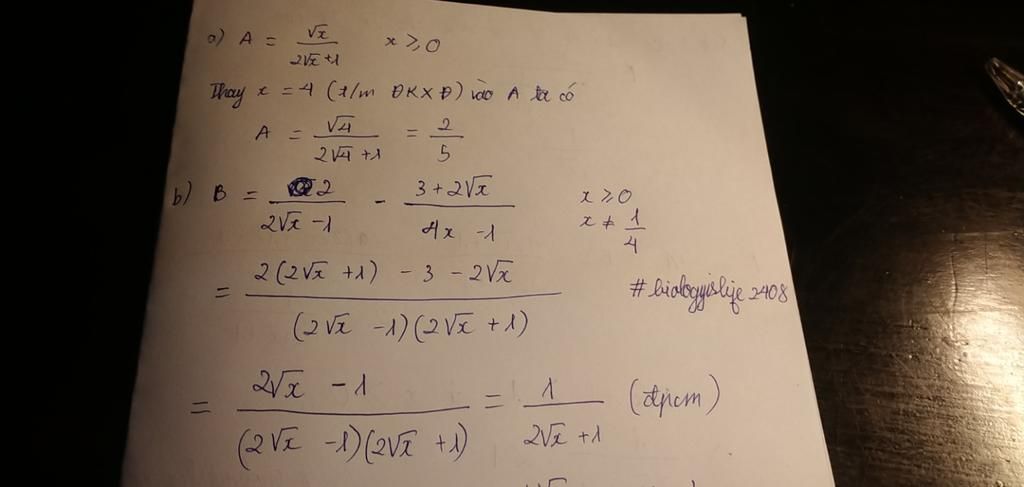 a) A = √x / (2√x+1)    x ≥ 0
Thay x = 4 (t/m ĐKXĐ) vào A ta có
A = √4 / (2√4+1) = 2/5
b) B = 2 / (2√x -1) - (3+2√x) / (4x -1)    x ≥ 0
x ≠ 1/4
= (2(2√x +1) - 3 - 2√x) / ((2√x -1)(2√x +1))
#biologyislife2408
= (2√x -1) / ((2√x -1)(2√x +1)) = 1 / (2√x +1) (đpcm)